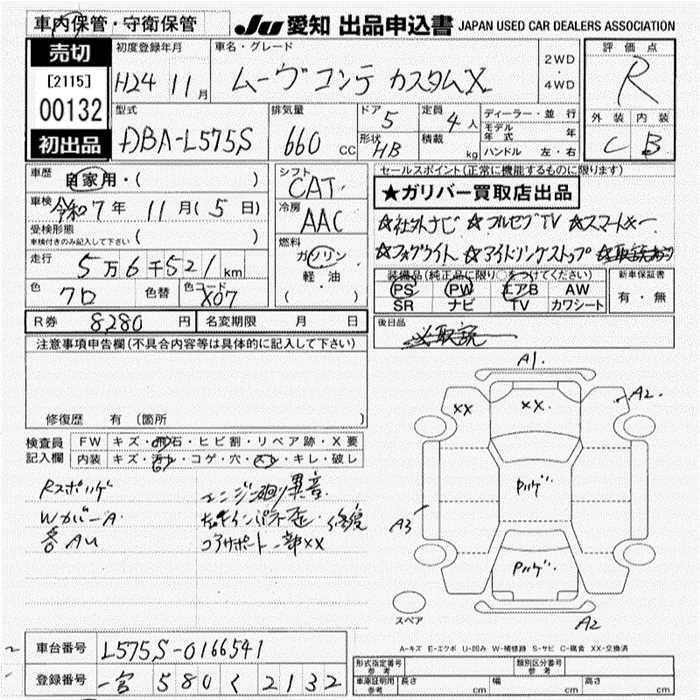 車内保管・守衛保管
JU 愛知 出品申込書 JAPAN USED CAR DEALERS ASSOCIATION
売切
[2115]
00132
初出品
初度登録年月
H24 11月
車名・グレード
ムーヴ コンテ カスタムX
2WD
4WD
評価点
R
外装 内装
C B
型式
DBA-L575S
排気量
660 cc
ドア 5
形状 HB
定員 4人
積載 kg
ディーラー・並行
モデル年式 年
ハンドル 左・右
車歴
自家用・( )
車検 令和7年 11月(5日)
受検形態
車検付きのみ記入して下さい ( )
走行
5万6千521km
色 クロ 色替 色コード X07
シフト
CAT
冷房
AAC
燃料
ガソリン
軽油
( )
セールスポイント(正常に機能するものに限ります)
★ガリバー買取店出品
☆社外ナビ ☆フルセグTV ☆スマートキー
☆フォグライト ☆アイドリングストップ
装備品(純正品に限り○をつけてください)
PS PW エアB AW
SR ナビ TV カワシート
新車保証書
有・無
R券 8280円 名変期限 月 日
後日品
取説
注意事項申告欄(不具合内容等は具体的に記入して下さい)
修復歴 有 (箇所 )
検査員記入欄
FW キズ・飛石・ヒビ割・リペア跡・X要
内装 キズ・汚れ・コゲ・穴・スレ・キレ・破レ
Wカバー A
各AU
エンジン廻り異音
コアサポート一部XX
A1
XX
XX
A2
A3
A2
スペア
A-キズ E-エクボ U-凹み W-補修跡 S-サビ C-腐食 XX-交換済
車台番号 L575S-0166541
登録番号 一宮 580 く 2132
形式指定番号 参考
類別区分番号 参考
車庫証明用 参考 長さ cm 幅 cm 高さ cm